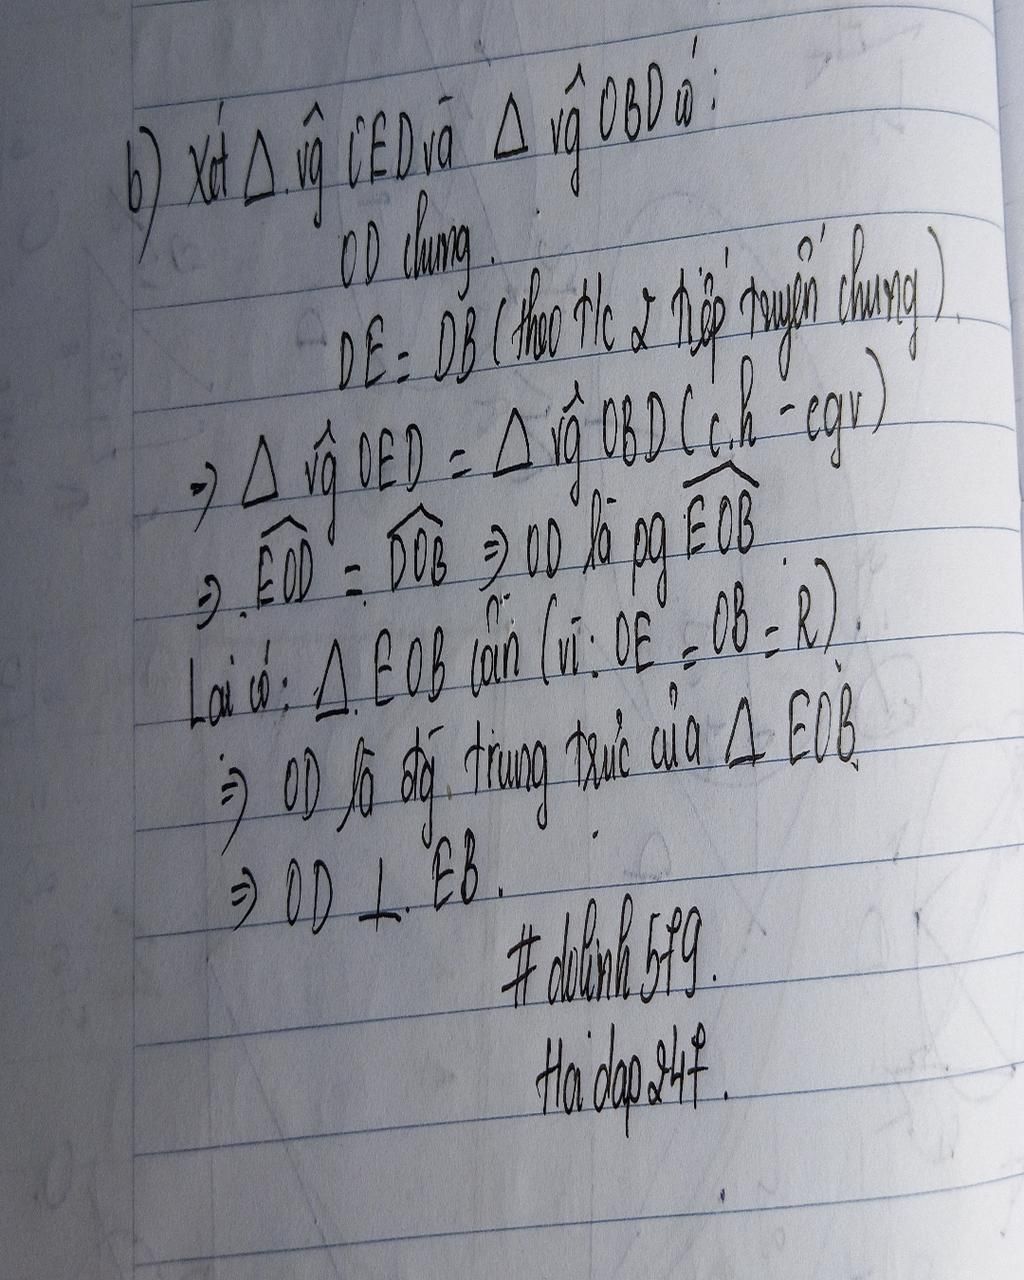 b) Xét Δ vg OED và Δ vg OBD có:
OD chung.
DE = DB (theo t/c 2 tiếp tuyến chung).
⇒ Δ vg OED = Δ vg OBD (c.h - cgv)
⇒ \widehat{EOD} = \widehat{DOB} ⇒ OD là pg \widehat{EOB}
Lại có: Δ EOB cân (vì: OE = OB = R).
⇒ OD là đg trung trực của Δ EOB
⇒ OD ⊥ EB.
# dolinh579.
Hoidap247.